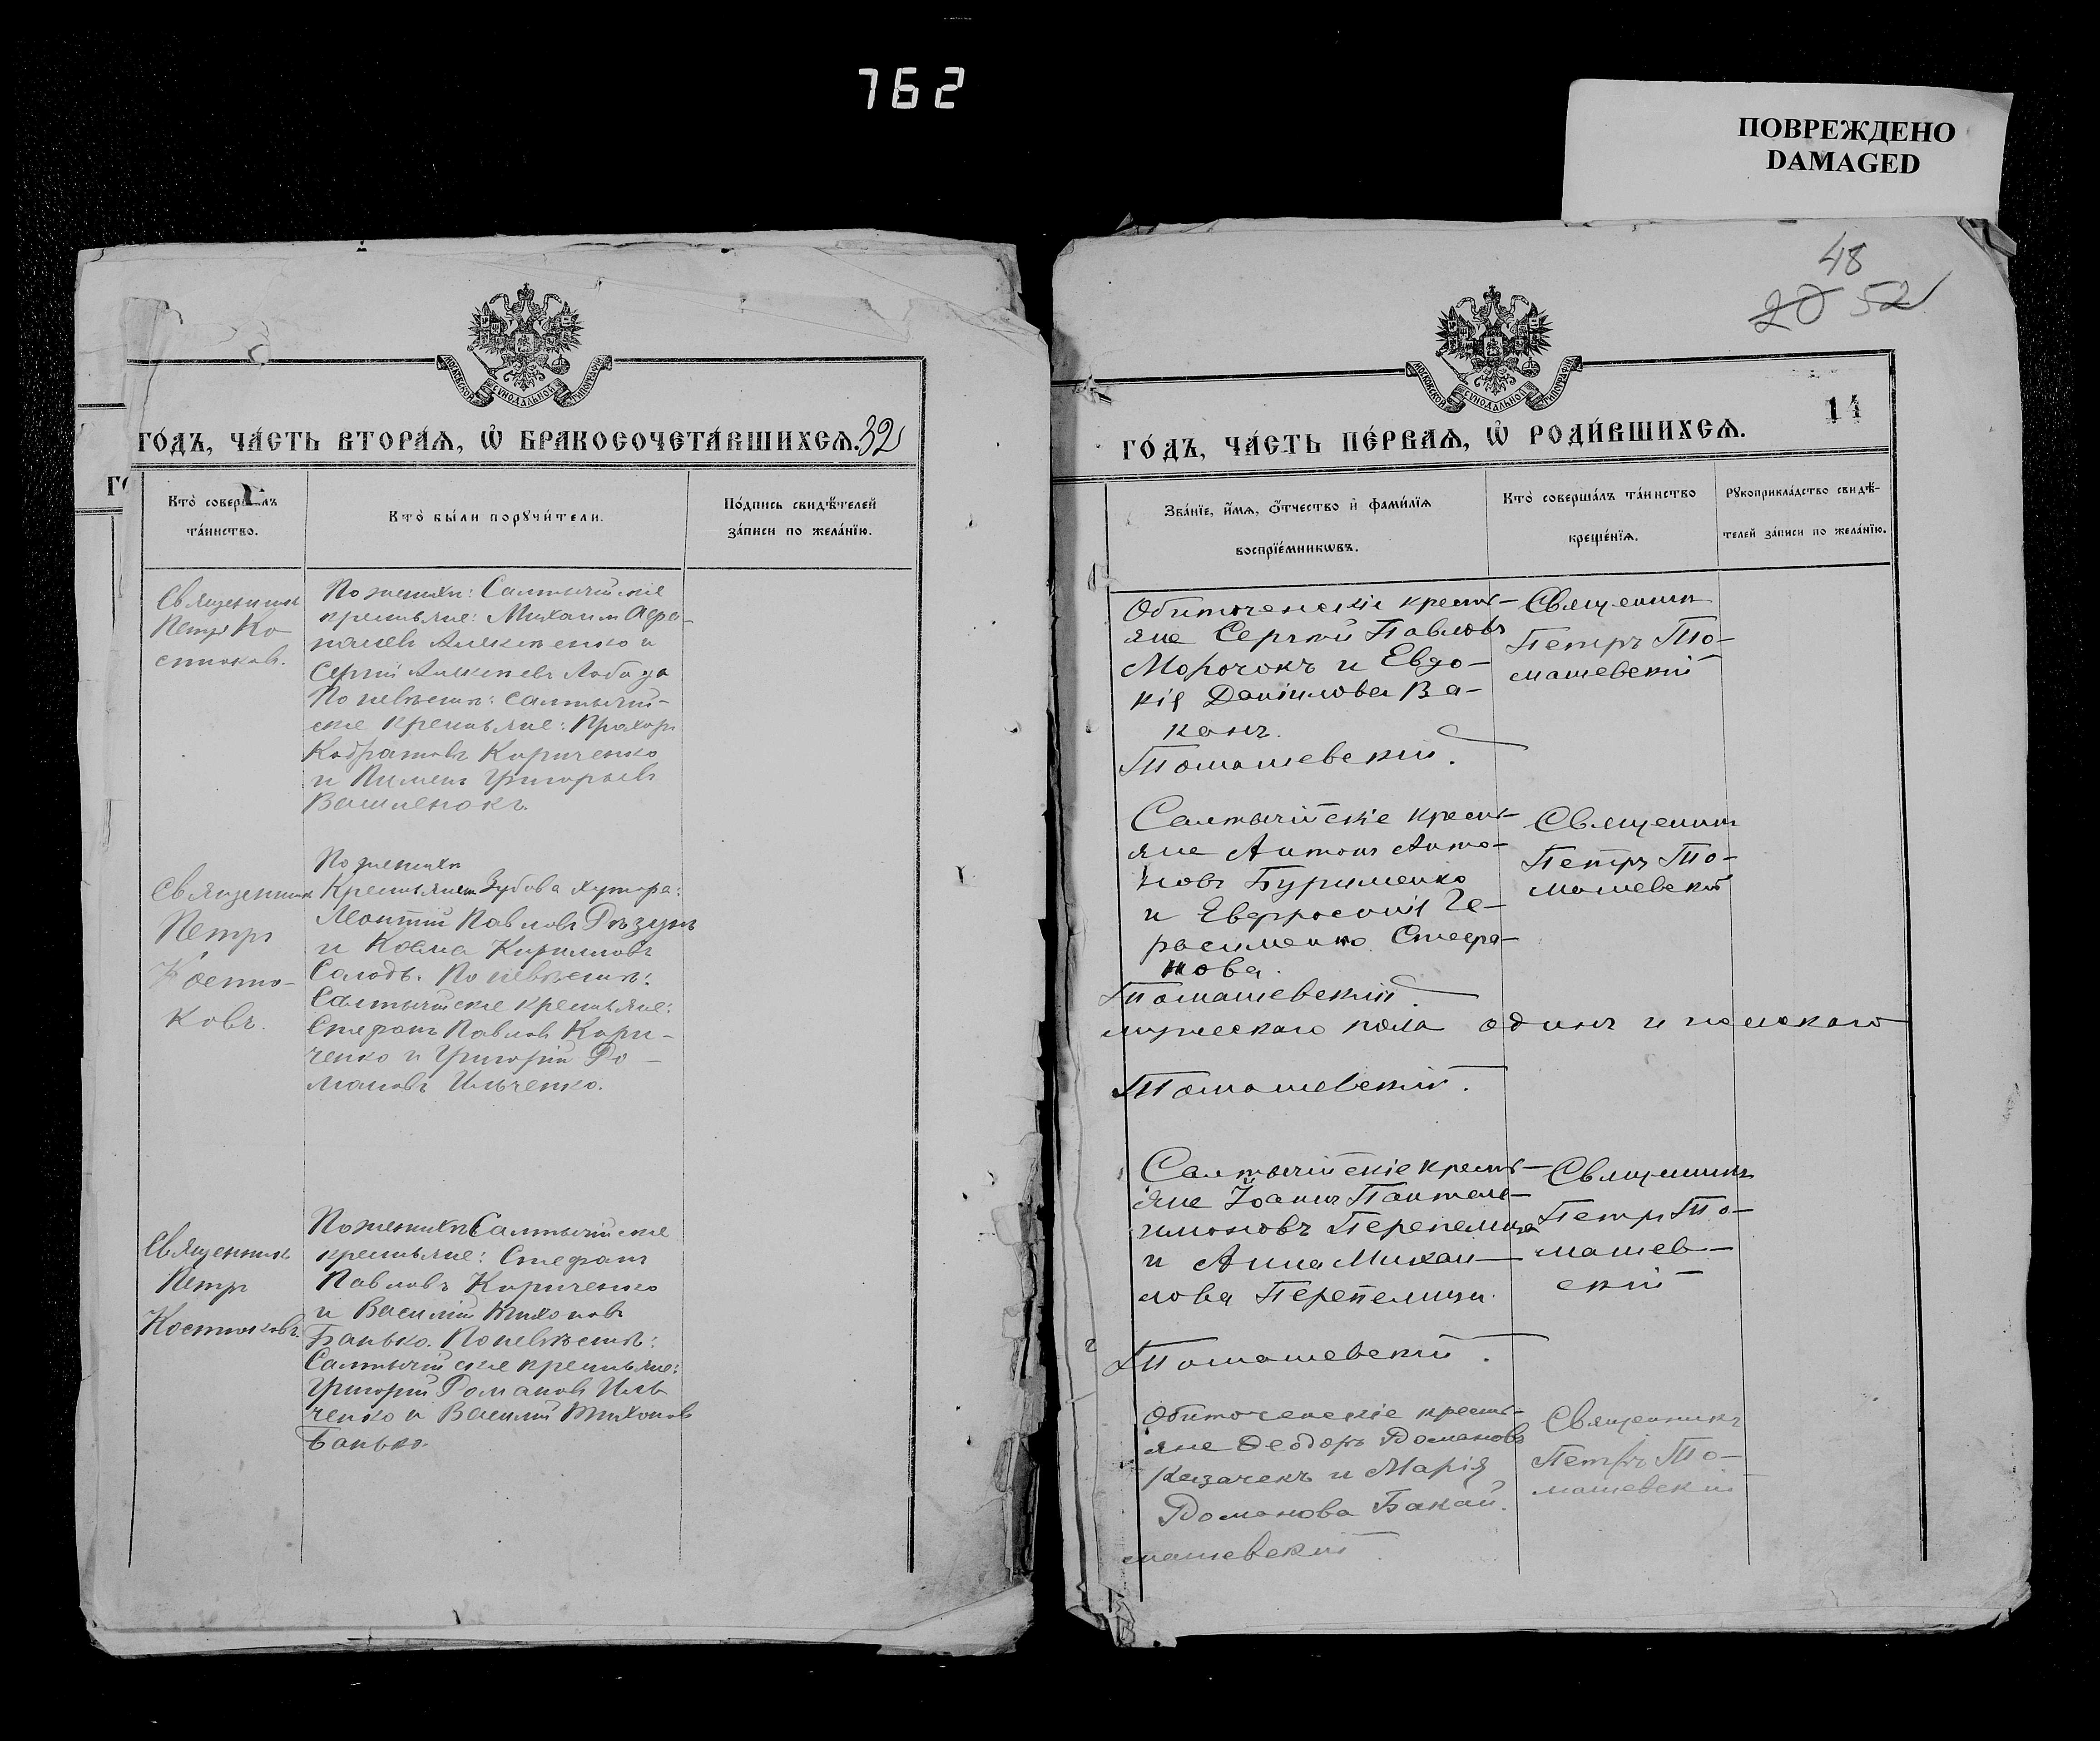 762
ПОВРЕЖДЕНО
DAMAGED
МОСКОВСКОЙ СѴНОДАЛЬНОЙ ТИПОГРАФІИ
ГО́ДЪ, ЧА́СТЬ ВТОРА́Ѧ, Ѡ҆ БРАКОСОЧЕТА́ВШИХСѦ. 32
Кто̀ соверша́лъ
та́инство.
Кто̀ бы́ли порꙋчи́тели.
По́дпись свидѣ́телей
за́писи по жела́нїю.
Священникъ
Петръ Ко-
стюковъ.
По женихѣ: Салтычійскіе
крестьяне: Михаилъ Афа-
насіевъ Алексѣенко и
Сергій Алексѣевъ Лобода
По невѣстѣ: Салтычій-
скіе крестьяне: Прохоръ
Кодратовъ Кириченко
и Пименъ Григорьевъ
Василенокъ.
Священникъ
Петръ
Костю-
ковъ.
По женихѣ
Крестьяне Зубова хутора:
Леонтій Павловъ Рѣзунъ
и Косма Кирилловъ
Солодъ. По невѣстѣ:
Салтычійскіе крестьяне:
Стефанъ Павловъ Кири-
ченко и Григорій Ро-
мановъ Ильченко.
Священникъ
Петръ
Костюковъ.
По женихѣ Салтычійскіе
крестьяне: Стефанъ
Павловъ Кириченко
и Василій Тихоновъ
Банько. По невѣстѣ:
Салтычійскіе крестьяне:
Григорій Романовъ Иль
ченко и Василій Тихоновъ
Банько.
48
20 52
МОСКОВСКОЙ СѴНОДАЛЬНОЙ ТИПОГРАФІИ
14
ГО́ДЪ, ЧА́СТЬ ПЕ́РВАѦ, Ѡ҆ РОДИ́ВШИХСѦ.
Зва́нїе, и҆́мѧ, ѻ҆́тчество и҆ фами́лїѧ
воспрїе́мникѡвъ.
Кто̀ соверша́лъ та́инство
креще́нїѧ.
Рꙋкоприкла́дство свидѣ́-
телей за́писи по жела́нїю.
Обиточенскіе кресть-
яне Сергій Павловъ
Морочокъ и Евдо-
кія Даніилова Ва-
канъ.
Томашевскій.
Священникъ
Петръ То-
машевскій
Салтычійскіе кресть-
яне Антонъ Анто-
новъ Бурименко
и Евфросинія Ге-
расименко Стефа-
нова.
Томашевскій.
Священникъ
Петръ То-
машевскій
мужескаго пола одинъ и женскаго
Томашевскій.
Салтычійскіе кресть-
яне Іоаннъ Пантеле-
имоновъ Перепелица
и Анна Михаи-
лова Перепелица.
Томашевскій.
Священникъ
Петръ То-
машев-
скій
Обиточенскіе кресть-
яне Ѳеодоръ Романовъ
Казачекъ и Марія
Романова Бакай.
машевскій
Священникъ
Петръ То-
машевскій